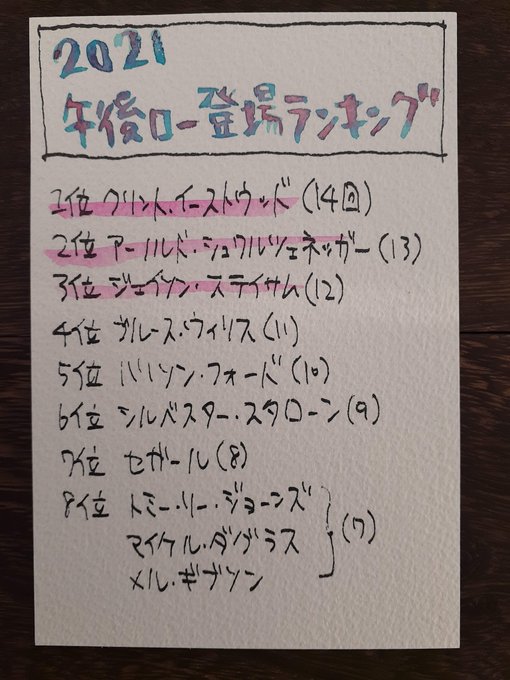 2021
午後ロー登場ランキング
1位 クリント・イーストウッド (14回)
2位 アーノルド・シュワルツェネッガー (13)
3位 ジェイソン・ステイサム (12)
4位 ブルース・ウィリス (11)
5位 ハリソン・フォード (10)
6位 シルベスター・スタローン (9)
7位 セガール (8)
8位 トミー・リー・ジョーンズ
マイケル・ダグラス (7)
メル・ギブソン